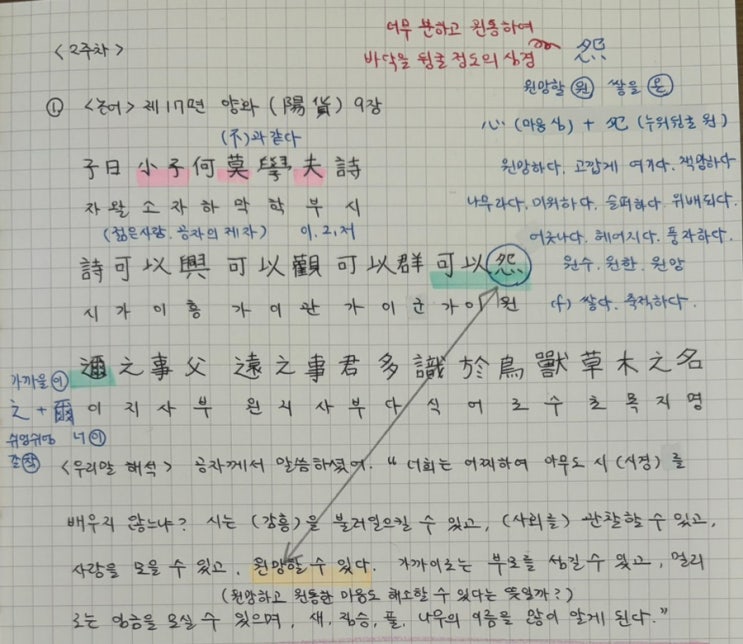 너무 분하고 원통하여
바닥을 뒹굴 정도의 심경
怨
<2주차>
원망할 원 쌓을 온
① <논어> 제17편 양화 (陽貨) 9장
心 (마음 심) + 夗 (누워뒹굴 원)
(不)과 같다
子曰 小子何莫學夫詩
원망하다. 고깝게 여기다. 책망하다
자왈소자하막학부시
나무라다. 미워하다. 슬퍼하다. 위배되다.
(젊은사람. 공자의 제자) 이, 그, 저
어긋나다. 헤어지다. 풍자하다.
詩可以興 可以觀 可以群 可以怨
원수. 원한. 원망
시가이흥 가이관 가이군 가이원
(f) 쌓다. 축적하다.
邇之事父 遠之事君 多識於鳥獸草木之名
가까울 이
이지사부 원지사부 다식어조수초목지명
辶 + 爾
쉬엄쉬엄 너 이
갈 착
<우리말 해석> 공자께서 말씀하셨어. "너희는 어찌하여 아무도 시 (시경) 를
배우지 않느냐? 시는 (감흥)을 불러일으킬 수 있고, (사회를) 관찰할 수 있고,
사람을 모을 수 있고, 원망할 수 있다. 가까이로는 부모를 섬길 수 있고, 멀리
(원망하고 원통한 마음도 해소할 수 있다는 뜻일까?)
로는 임금을 모실 수 있으며, 새, 짐승, 풀, 나무의 이름을 많이 알게 된다."